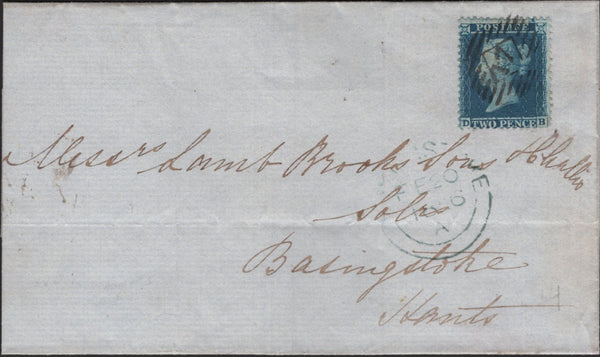 POSTAGE
D TWO PENCE B
Messrs Lamb Brooks Sons &
Solrs
Basingstoke
Hants